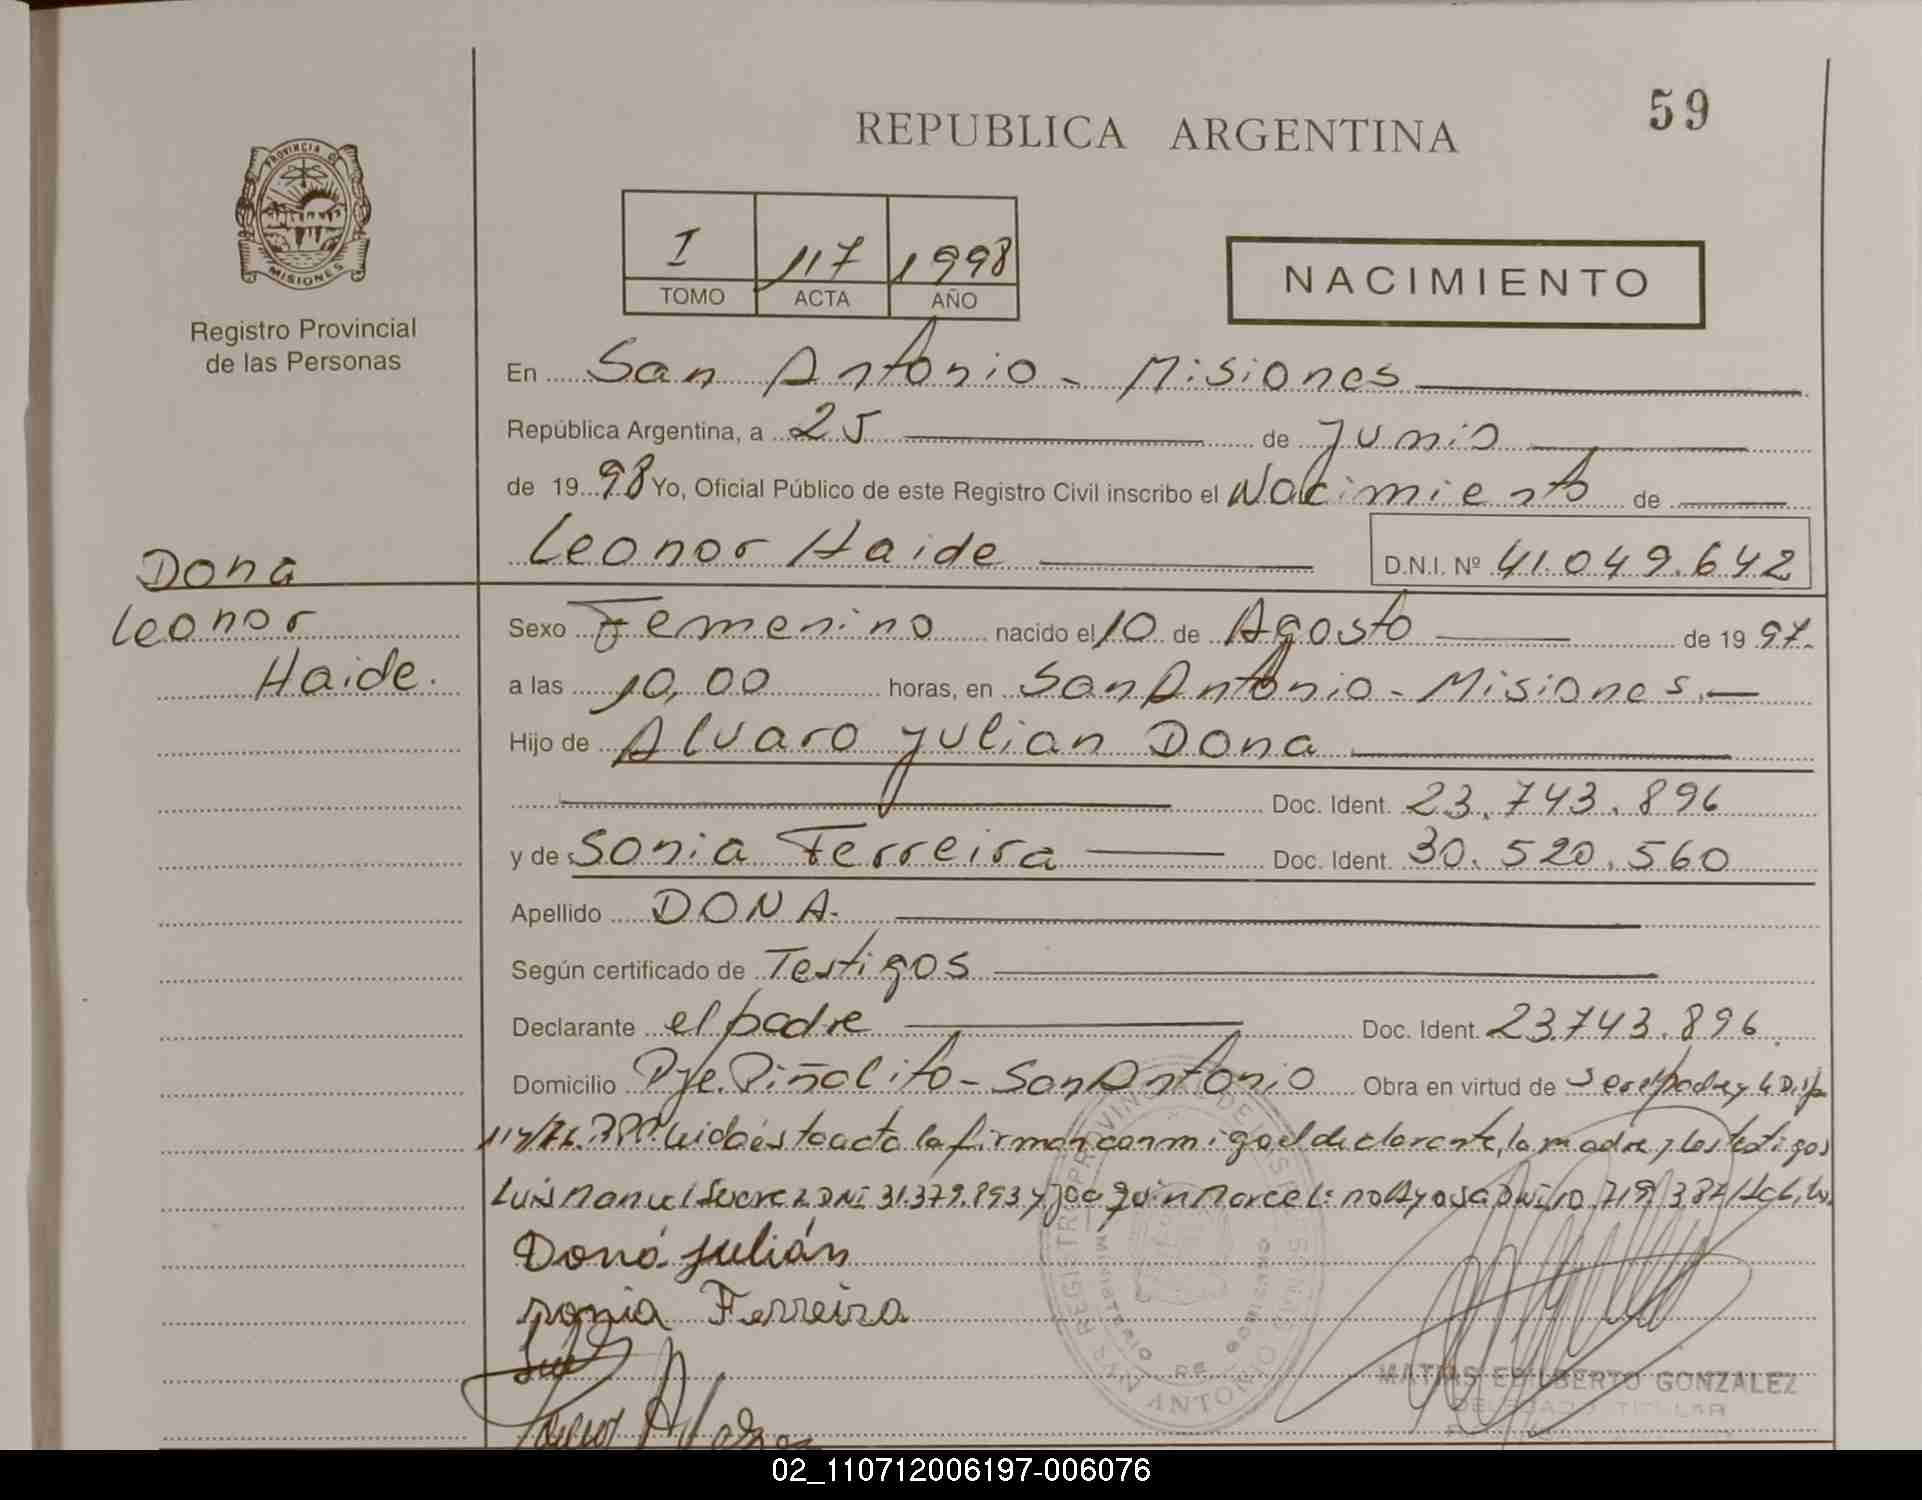 59
REPUBLICA ARGENTINA
PROVINCIA DE
MISIONES
Registro Provincial
de las Personas
I 117 1998
TOMO ACTA AÑO
NACIMIENTO
En San Antonio - Misiones
República Argentina, a 25 de Junio
de 1998 Yo, Oficial Público de este Registro Civil inscribo el Nacimiento de
Leonor Haide D.N.I. Nº 41.049.642
Dona
Leonor
Haide.
Sexo Femenino nacido el 10 de Agosto de 1997.
a las 10,00 horas, en San Antonio - Misiones.
Hijo de Alvaro Julian Dona
Doc. Ident. 23.743.896
y de Sonia Ferreira Doc. Ident. 30.520.560
Apellido DONA.
Según certificado de Testigos
Declarante el padre Doc. Ident. 23.743.896
Domicilio Pje. Piñalito - San Antonio Obra en virtud de ser el padre y la Disp
Leida ésta acta la firman conmigo el declarante, la madre y los testigos
Luis Manuel DNI 31.379.893 y Joaquin Marcelino
Doná Julián
sonia Ferreira
MATIAS EDILBERTO GONZALEZ
DELEGADO TITULAR
02_110712006197-006076